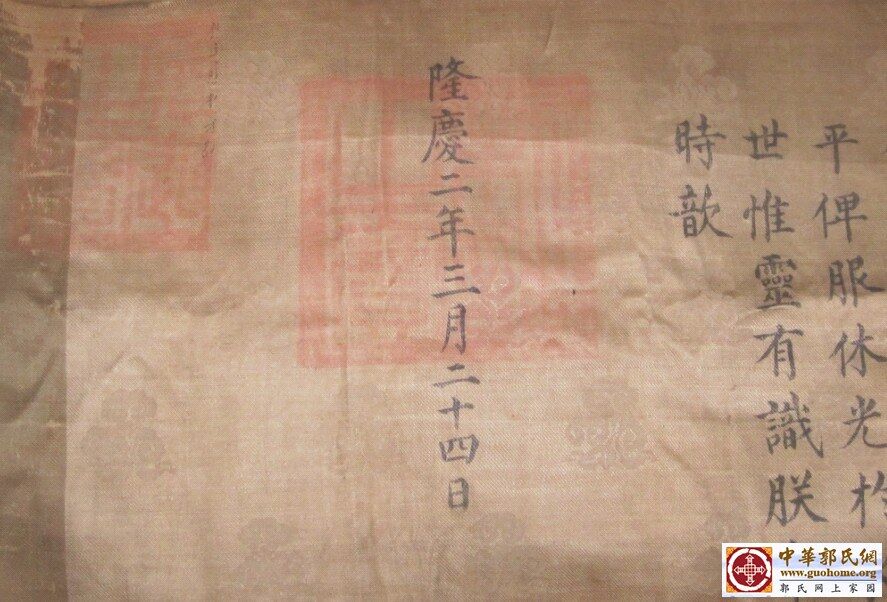 平俾服休光於
世惟靈有識朕
時歆
隆慶二年三月二十四日
中華郭氏網
www.guohome.org
郭氏网上家园